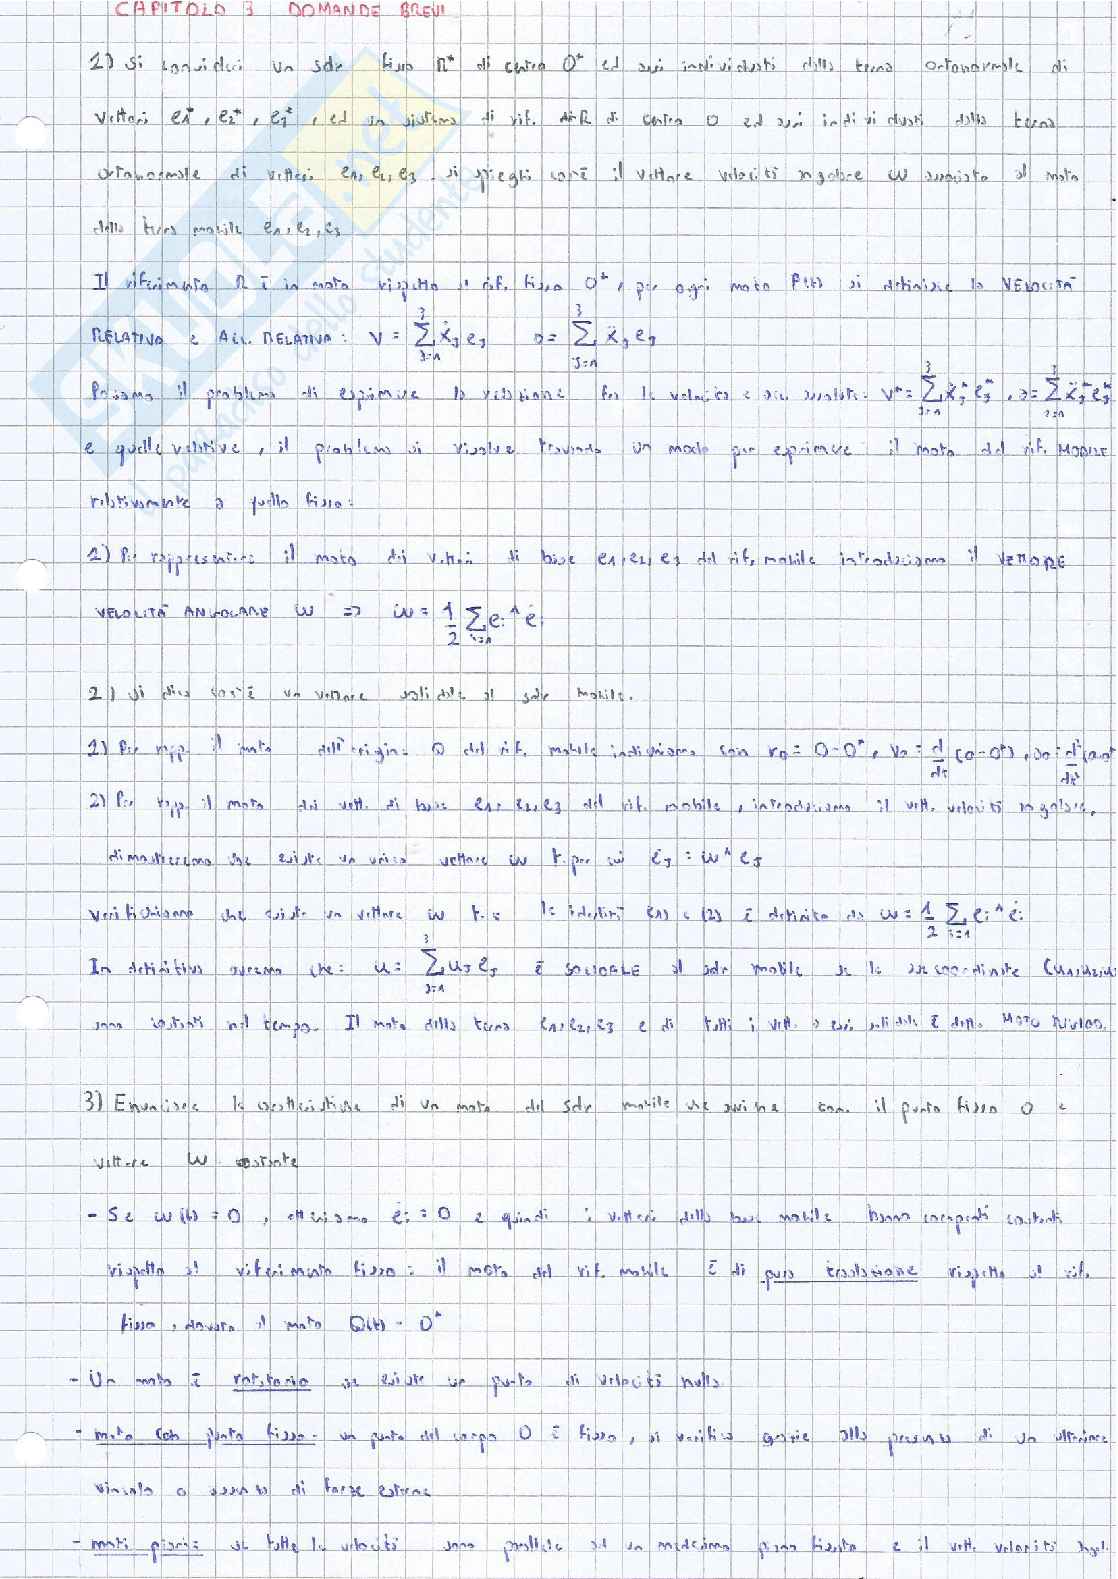 CAPITOLO 3 DOMANDE BREVI
1) Si consideri un sdr fisso R* di centro O* ed assi individuati dalla terna ortonormale di
vettori e1*, e2*, e3*, ed un sistema di rif. R di centro O ed assi individuati dalla terna
ortonormale di vettori e1, e2, e3. si spieghi cos'è il vettore velocità angolare ω associato al moto
della terna mobile e1, e2, e3
Il riferimento R è in moto rispetto al rif. fisso O*, per ogni moto P(t) si definisce la VELOCITÀ
RELATIVA e ACC. RELATIVA: v = Σ³j=1 ẋj ej   a = Σ³j=1 ẍj ej
Poniamo il problema di esprimere la relazione fra le velocità e acc. assolute: v* = Σ³j=1 ẋj* ej*, a = Σ³j=1 ẍj* ej*
e quelle relative, il problema si risolve trovando un modo per esprimere il moto del rif. MOBILE
relativamente a quello fisso:
1) Per rappresentare il moto dei vettori di base e1, e2, e3 del rif. mobile introduciamo il VETTORE
VELOCITÀ ANGOLARE ω => ω = 1/2 Σi=1 ei ^ ėi
2) si dica cos'è un vettore solidale al sdr mobile.
1) Per rapp. il moto dell'origine O del rif. mobile indichiamo con r0 = O-O*, v0 = d/dt (O-O*), a0 = d²/dt² (O-O*
2) Per rapp. il moto dei vett. di base e1, e2, e3 del rif. mobile, introduciamo il vett. velocità angolare,
dimostreremo che esiste un unico vettore ω t. per cui ėj = ω ^ ej
Verifichiamo che esiste un vettore ω t.c. le identità (1) e (2) è definito da ω = 1/2 Σ³i=1 ei ^ ėi
In definitiva avremo che: u = Σ³j=1 uj ej è SOLIDALE al sdr mobile se le sue coordinate
sono costanti nel tempo. Il moto della terna e1, e2, e3 e di tutti i vett. a essi solidali è detto MOTO RIGIDO.
3) Enunciare le caratteristiche di un moto del sdr mobile che avviene con il punto fisso O e
vettore ω costante
- Se ω(t) = 0, otteniamo ėi = 0 e quindi i vettori della base mobile hanno componenti costanti
rispetto al riferimento fisso: il moto del rif. mobile è di pura traslazione rispetto al rif.
fisso, dovuta il moto O(t) - O*
- Un moto è rotatorio se esiste un punto di velocità nulla
- moto con punto fisso: un punto del corpo O è fisso, si verifica grazie alla presenza di un ulteriore
vincolo o assenza di forze esterne
- moti piani: se tutte le velocità sono parallele ad un medesimo piano fissato e il vett. velocità angol.
SKUOLA.net
il paradiso dello studente